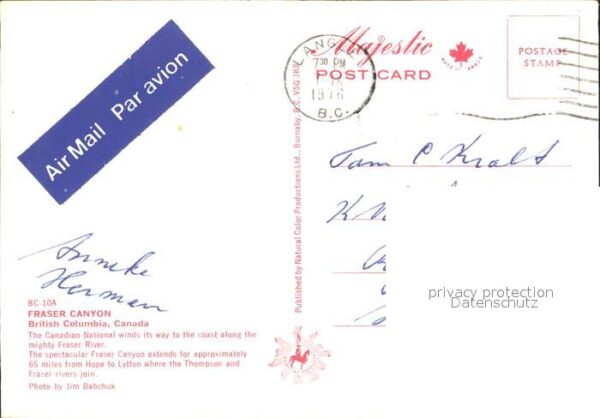 Air Mail Par avion
LANGLEY
7 30 PM
1976
B.C.
Majestic
POST CARD
MADE IN CANADA
POSTAGE
STAMP
Published by Natural Color Productions Ltd., Burnaby, B.C. V5G 3K8
Fam C Kralt
K
privacy protection
Datenschutz
Anneke
Herman
BC-10A
FRASER CANYON
British Columbia, Canada
The Canadian National winds its way to the coast along the
mighty Fraser River.
The spectacular Fraser Canyon extends for approximately
65 miles from Hope to Lytton where the Thompson and
Fraser rivers join.
Photo by Jim Babchuk